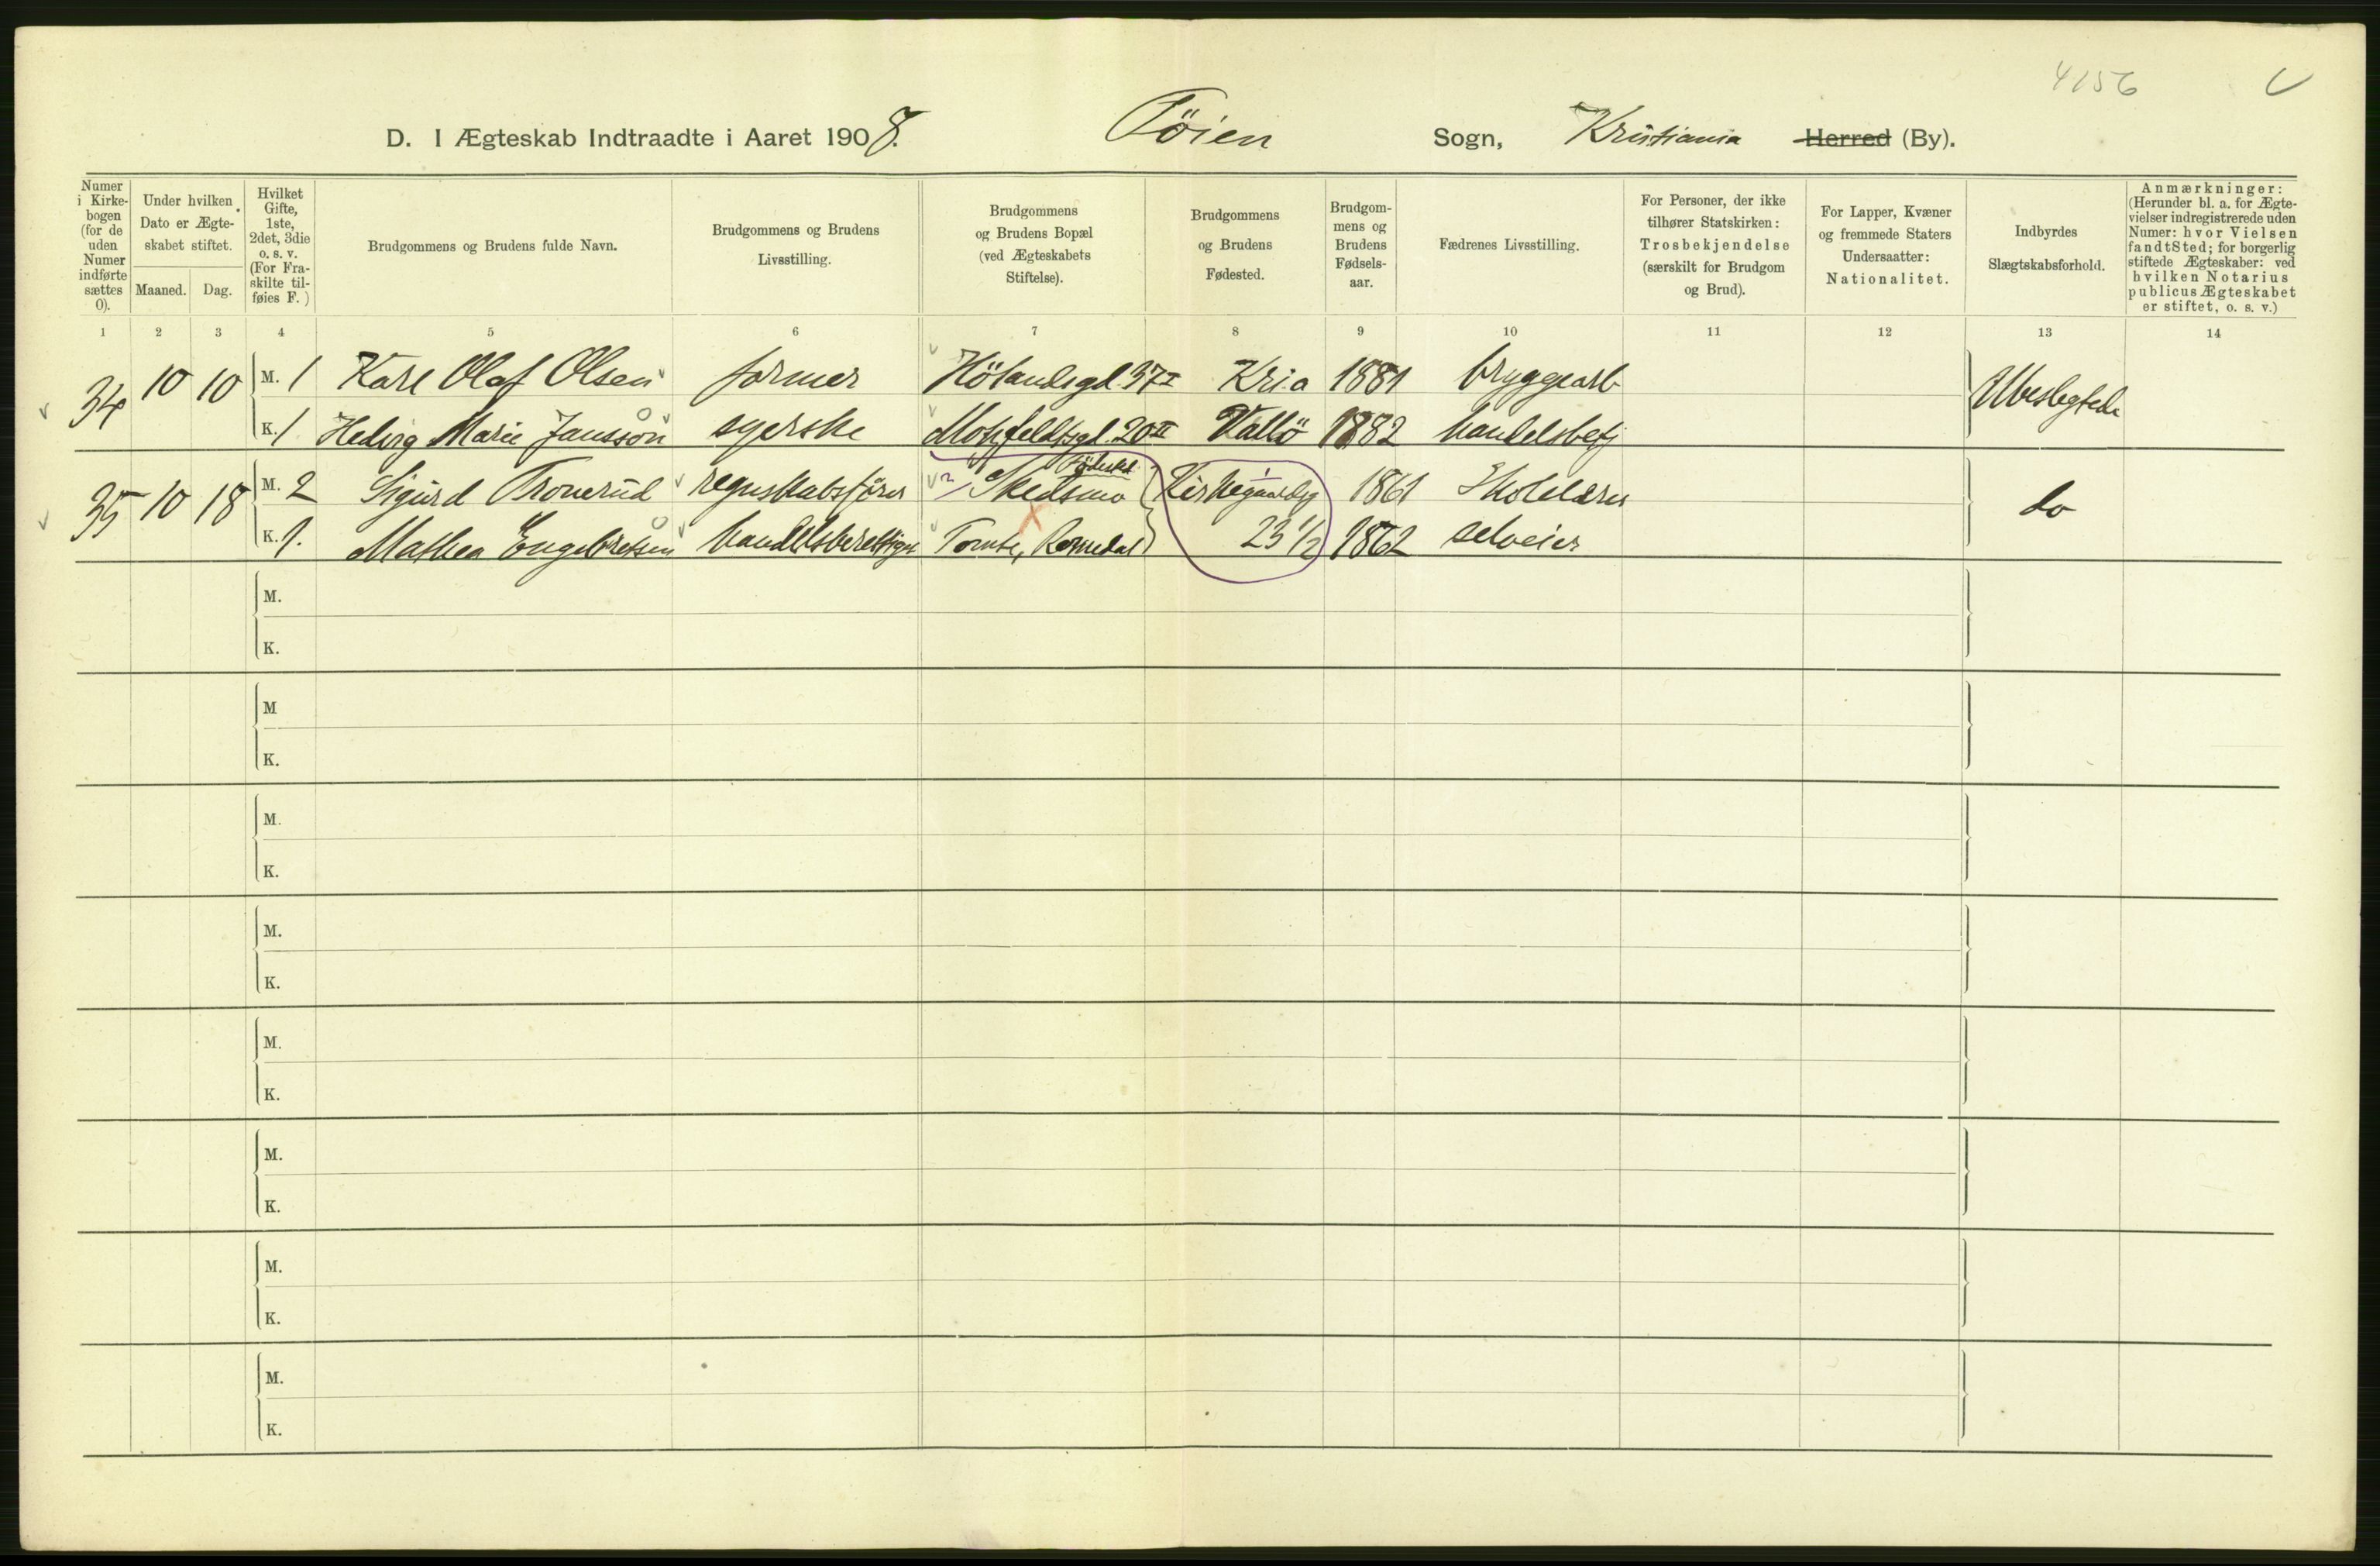 4156
D. I Ægteskab Indtraadte i Aaret 1908. Töien Sogn, Kristiania Herred (By).
Numer i Kirkebogen (for de uden Numer indførte sættes 0).
Under hvilken Dato er Ægteskabet stiftet.
Maaned. Dag.
Hvilket Gifte, 1ste, 2det, 3die o. s. v. (For Fraskilte tilføies F.)
Brudgommens og Brudens fulde Navn.
Brudgommens og Brudens Livsstilling.
Brudgommens og Brudens Bopæl (ved Ægteskabets Stiftelse).
Brudgommens og Brudens Fødested.
Brudgommens og Brudens Fødselsaar.
Fædrenes Livsstilling.
For Personer, der ikke tilhører Statskirken: Trosbekjendelse (særskilt for Brudgom og Brud).
For Lapper, Kvæner og fremmede Staters Undersaatter: Nationalitet.
Indbyrdes Slægtskabsforhold.
Anmærkninger: (Herunder bl. a. for Ægtevielser indregistrerede uden Numer: hvor Vielsen fandt Sted; for borgerlig stiftede Ægteskaber: ved hvilken Notarius publicus Ægteskabet er stiftet, o. s. v.)
1 2 3 4 5 6 7 8 9 10 11 12 13 14
34 10 10 M. 1 Karl Olaf Olsen former Hölandsgd. 37 I Kria 1881 bryggearb Ubeslegtede
K. 1 Hedvig Marie Jansson syerske Motzfeldtsgd. 20 II Vallö 1882 handelsbetj
35 10 18 M. 2 Sigurd Tronerud regnskabsförer Skedsmo Kirkegaardsg 1861 Skolelærer do
K. 1. Mathea Engebretsen handelsberettiget Tomte, Romedal 23 1/2 1862 selveier
M.
K.
M
K.
M.
K.
M.
K.
M.
K.
M.
K.
M.
K.
M.
K.